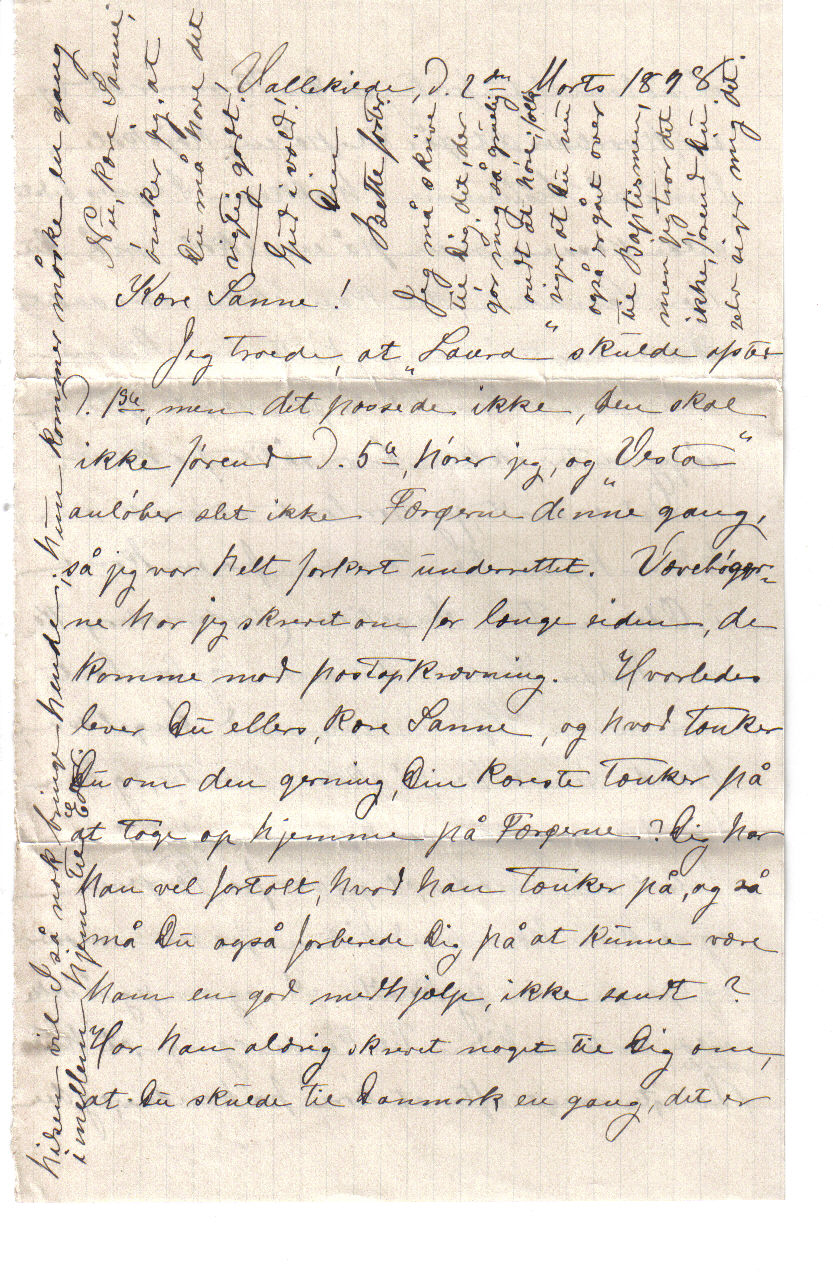 Vallekilde, d. 2den Marts 1898.
Kære Sanne!
Jeg troede, at "Laura" skulde afsted
d. 1ste, men det passede ikke, den skal
ikke førend d. 5te, hører jeg, og "Vesta"
anløber slet ikke Færøerne denne gang,
så jeg var helt forkert underrettet. Vævebøger-
ne har jeg skrevet om for længe siden, de
komme mod postopkrævning. Hvorledes
lever Du ellers, kære Sanne, og hvad tænker
Du om den gerning, Din kæreste tænker på
at tage op hjemme på Færøerne? Dig har
han vel fortalt, hvad han tænker på, og så
må Du også forberede Dig på at kunne være
ham en god medhjælp, ikke sandt?
Har han aldrig skrevet noget til Dig om,
at Du skulde til Danmark en gang, det er
hilsen vil I så nok bringe hende, hun kommer måske en gang
imellem hjem til Eder.
Nu, kære Sanne,
ønsker jeg, at
Du må have det
rigtig godt!
Gud i vold!
Din
Bette faster.
Jeg må skrive
til Dig det, der
gør mig så grueligt
ondt at høre; folk
siger, at Du nu
også er gået over
til Baptismen,
men jeg tror det
ikke, førend Du
selv siger mig det.